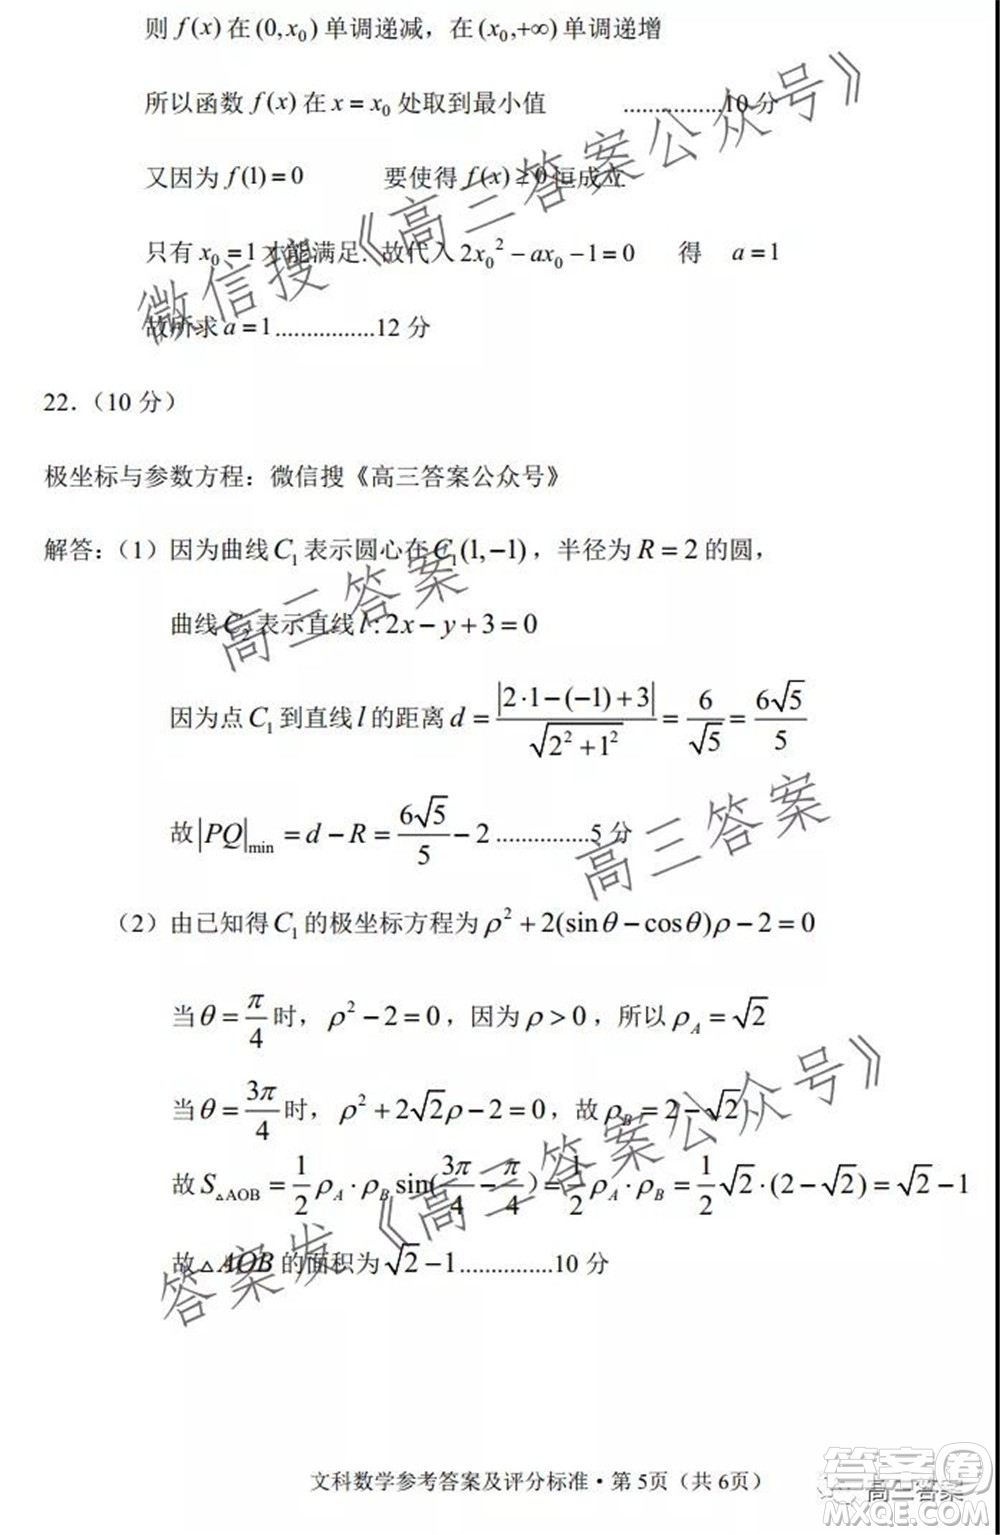 则 f(x) 在 (0, x₀) 单调递减，在 (x₀, +∞) 单调递增
所以函数 f(x) 在 x = x₀ 处取到最小值 ................10 分
又因为 f(1) = 0 要使得 f(x) ≥ 0 恒成立
只有 x₀ = 1 才能满足. 故代入 2x₀² − ax₀ − 1 = 0 得 a = 1
故所求 a = 1................12 分
微信搜《高三答案公众号》
22.（10 分）
极坐标与参数方程：微信搜《高三答案公众号》
解答：（1）因为曲线 C₁ 表示圆心在 C₁(1, −1)，半径为 R = 2 的圆，
曲线 C₂ 表示直线 l : 2x − y + 3 = 0
高三答案
因为点 C₁ 到直线 l 的距离 d = |2·1 − (−1) + 3| / √(2² + 1²) = 6/√5 = 6√5/5
故 |PQ|min = d − R = 6√5/5 − 2 ...............5 分
高三答案
（2）由已知得 C₁ 的极坐标方程为 ρ² + 2(sinθ − cosθ)ρ − 2 = 0
当 θ = π/4 时，ρ² − 2 = 0，因为 ρ > 0，所以 ρ_A = √2
当 θ = 3π/4 时，ρ² + 2√2ρ − 2 = 0，故 ρ_B = 2 − √2
故 S△AOB = 1/2 ρ_A · ρ_B sin(3π/4 − π/4) = 1/2 ρ_A · ρ_B = 1/2 √2 · (2 − √2) = √2 − 1
故 △AOB 的面积为 √2 − 1...............10 分
答案发《高三答案公众号》
文科数学参考答案及评分标准·第 5页（共 6页）
高三答案